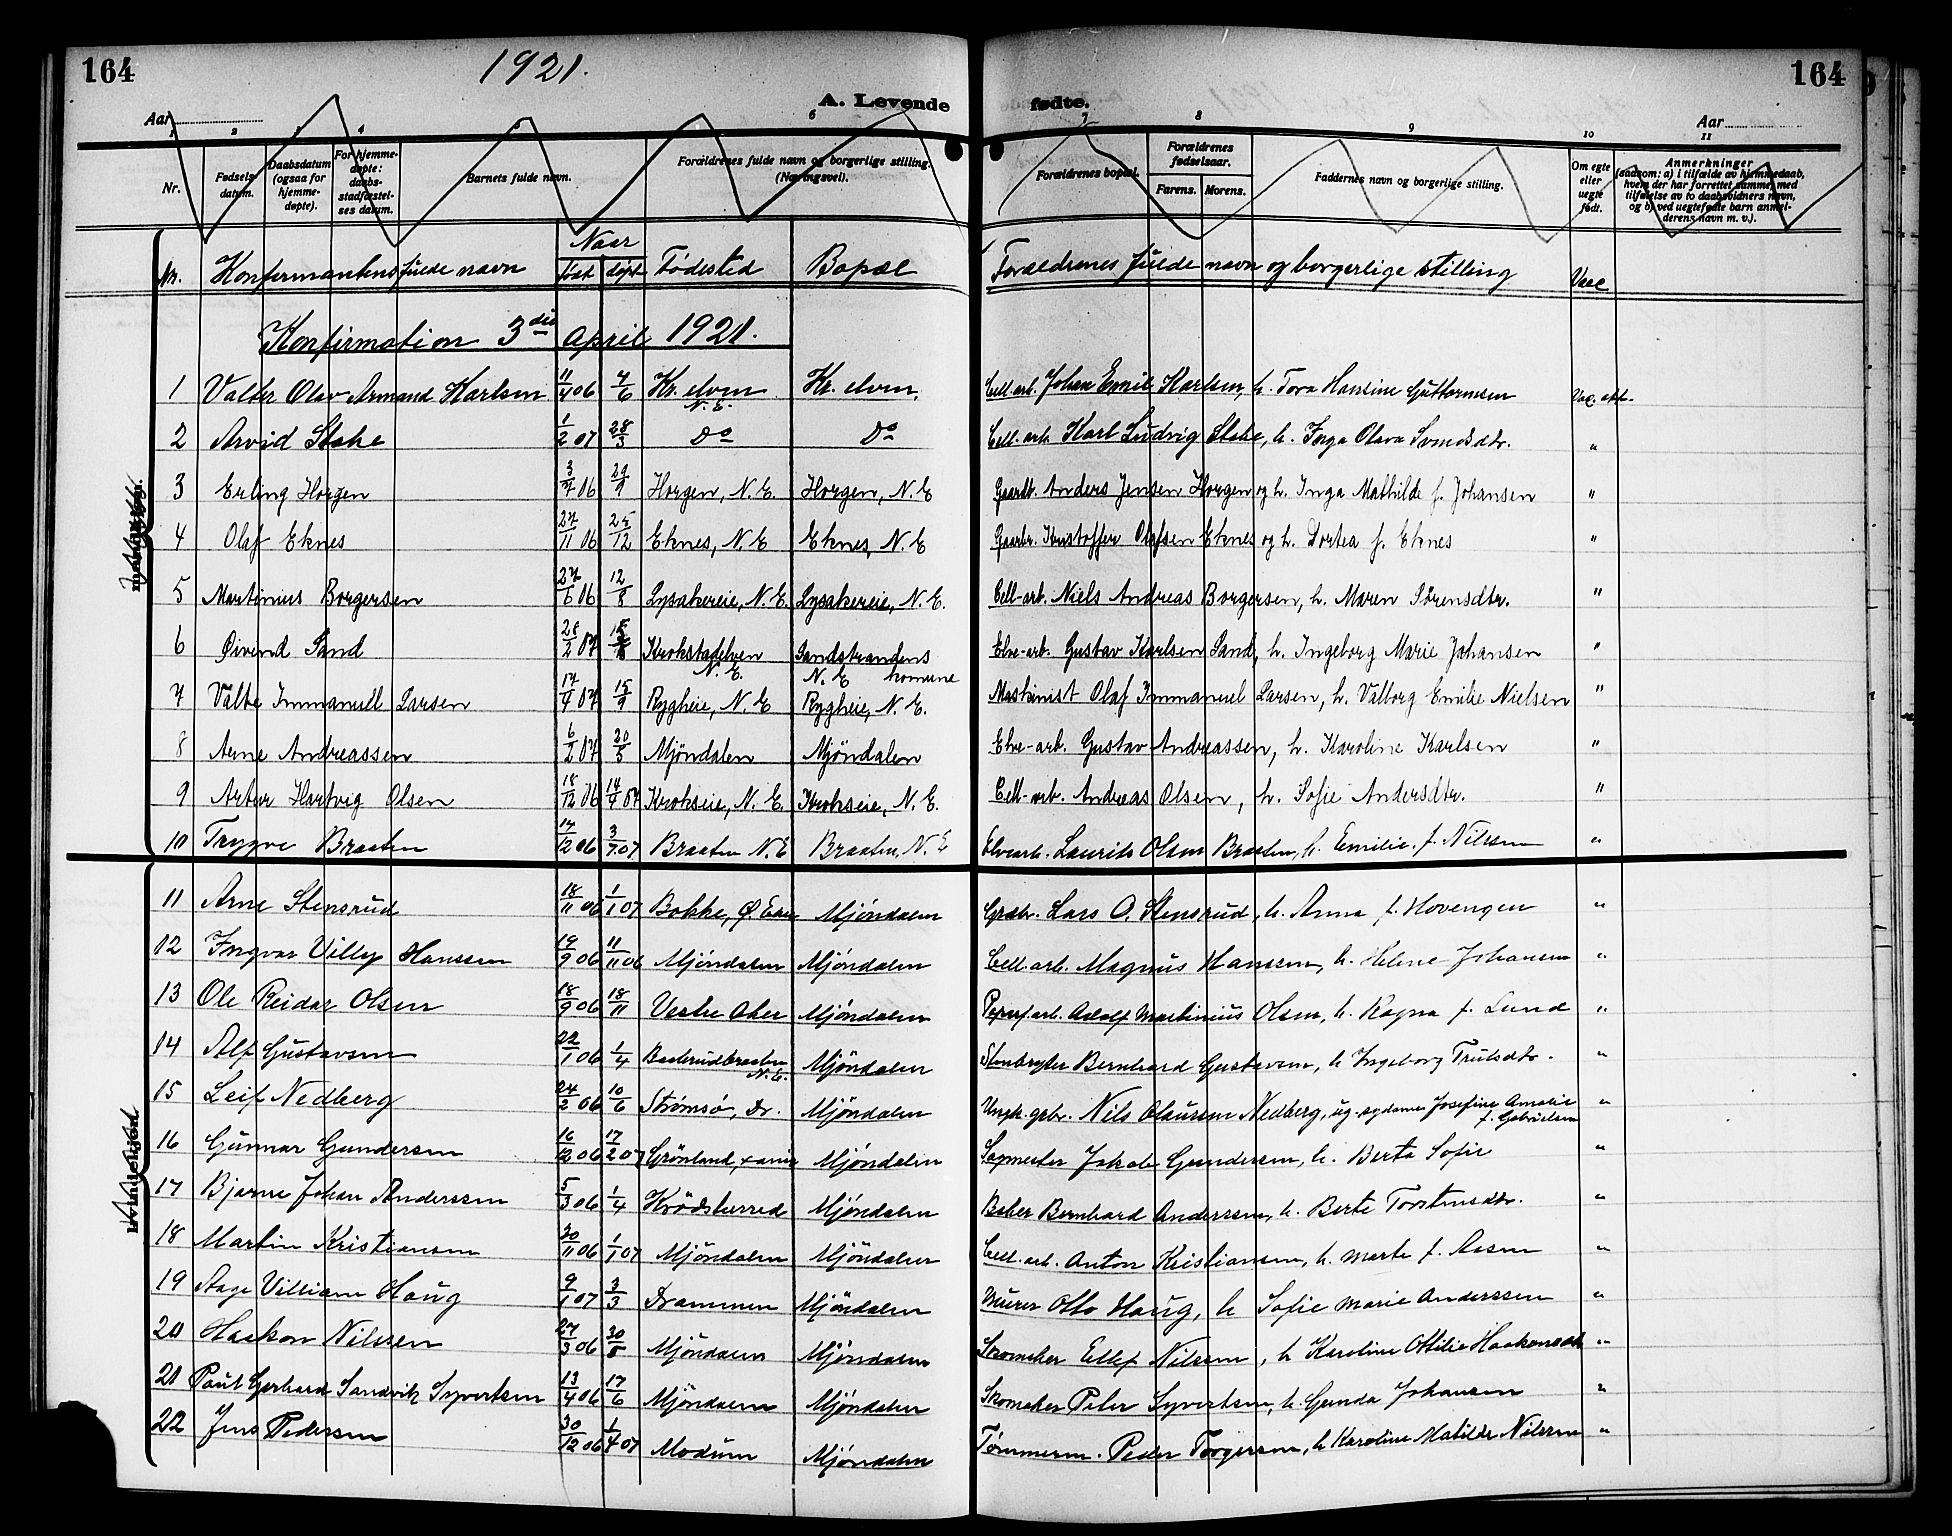 164
1921.
A. Levende
fødte.
164
Aar
Aar
1 2 3 4 5 6 7 8 9 10 11
Nr.
Fødsels-datum.
Daabsdatum (ogsaa for hjemme-døpte).
For hjemme-døpte: daabs-stadfæstel-ses datum.
Barnets fulde navn.
Forældrenes fulde navn og borgerlige stilling. (Næringsvei).
Forældrenes bopæl.
Forældrenes fødselsaar.
Farens. Morens.
Faddernes navn og borgerlige stilling.
Om egte eller uegte født.
Anmerkninger (saasom: a) i tilfælde av hjemmedaab, hvem der har forrettet samme, med tilføielse av to daabsvidners navn, og b) ved uegtefødte barn anmel-derens navn m. v.).
Nr. Konfirmantens fulde navn Naar født døpt Födested Bopæl Forældrenes fulde navn og borgerlige stilling Vacc
Konfirmation 3die April 1921.
1 Valter Olav Armand Karlsen 11/4 06 4/6 Kr. elven N.E. Kr. elven Cell.arb. Johan Emil Karlsen, h. Tora Hansine Guttormsen Vac. att.
2 Arvid Stake 1/2 07 28/3 Do Do Cell.arb. Karl Ludvig Stake, h. Inga Olava Svendsdtr. "
3 Erling Horgen 3/7 06 29/9 Horgen, N.E. Horgen, N.E Gaardb. Anders Jensen Horgen og h. Inga Mathilde f. Johansen "
4 Olaf Eknes 27/11 06 25/12 Eknes, N.E Eknes, N.E Gaarbr. Kristoffer Olafsen Eknes og h. Dortea f. Eknes "
5 Martinius Borgersen 27/6 06 12/8 Lysakereie, N.E. Lysakereie, N.E. Cell-arb. Niels Andreas Borgersen, h. Maren Sörensdtr. "
6 Øivind Sand 28/2 07 Krokstadelven N.E. Sandstrandens N.E komune Elve-arb. Gustav Karlsen Sand, h. Ingeborg Marie Johansen "
7 Valte Immanuell Larsen 17/4 07 15/9 Rygheie, N.E Rygheie, N.E. Maskinist Olaf Immanuel Larsen, h. Valborg Emilie Nielsen "
8 Arne Andreassen 6/2 07 20/5 Mjöndalen Mjöndalen Elve-arb. Gustav Andreassen, h. Karoline Karlsen "
9 Artur Hartvig Olsen 18/12 06 14/4 07 Krokseie, N.E. Krokseie, N.E. Cell-arb. Andreas Olsen, h. Sofie Andersdtr. "
10 Trygve Braaten 14/12 06 3/7 07 Braaten N.E Braaten, N.E Elvearb. Laurits Olsen Braaten, h. Emilie f. Nilssen "
11 Arne Stensrud 18/11 06 1/1 07 Bakke, Ø. Eker Mjöndalen Grdbr. Lars O. Stensrud, h. Anna f. Hovengen "
12 Ingvar Villy Hanssen 19/9 06 11/11 06 Mjöndalen Mjöndalen Cell.arb. Magnus Hanssen, h. Helene Johansen "
13 Ole Reidar Olsen 18/9 06 18/11 Vestre Aker Mjöndalen Papirf.arb. Adolf Martinius Olsen, h. Ragna f. Lund "
14 Alf Gustavsen 22/1 06 1/4 N.E. Mjöndalen Stenbryter Bernhard Gustavsen, h. Ingeborg Trulsdtr. "
15 Leif Nedberg 24/2 06 10/6 Strömsö, Dr. Mjöndalen Ungk. grbr. Nils Olaussen Nedberg, ug. sydame Josefine Amalie f. Gabrielsen "
16 Gunnar Gundersen 16/12 06 17/2 07 Grönland, x ania Mjöndalen Sagmester Jakob Gundersen, h. Berta Sofie "
17 Bjarne Johan Anderssen 5/3 06 1/4 Krödsherred Mjöndalen Baker Bernhard Anderssen, h. Berte Torstensdtr. "
18 Martin Kristiansen 30/11 06 1/1 07 Mjöndalen Mjöndalen Cell. arb. Anton Kristiansen, h. Marte f. Aasen "
19 Aage Villiam Haug 9/1 07 3/3 Drammen Mjöndalen Murer Otto Haug, h. Sofie Marie Anderssen "
20 Haakon Nilssen 27/3 06 30/8 Mjöndalen Mjöndalen Skomaker Edlef Nilssen, h. Karoline Ottilie Haakonsdtr "
21 Paul Gerhard Sandvik Syvertsen 13/4 06 17/6 Mjöndalen Mjöndalen Skomaker Peter Syvertsen, h. Gunda Johansen "
22 Jens Pedersen 30/12 06 1/4 07 Modum Mjöndalen Tömmerm. Peder Torgersen, h. Karoline Matilde Nilssen "